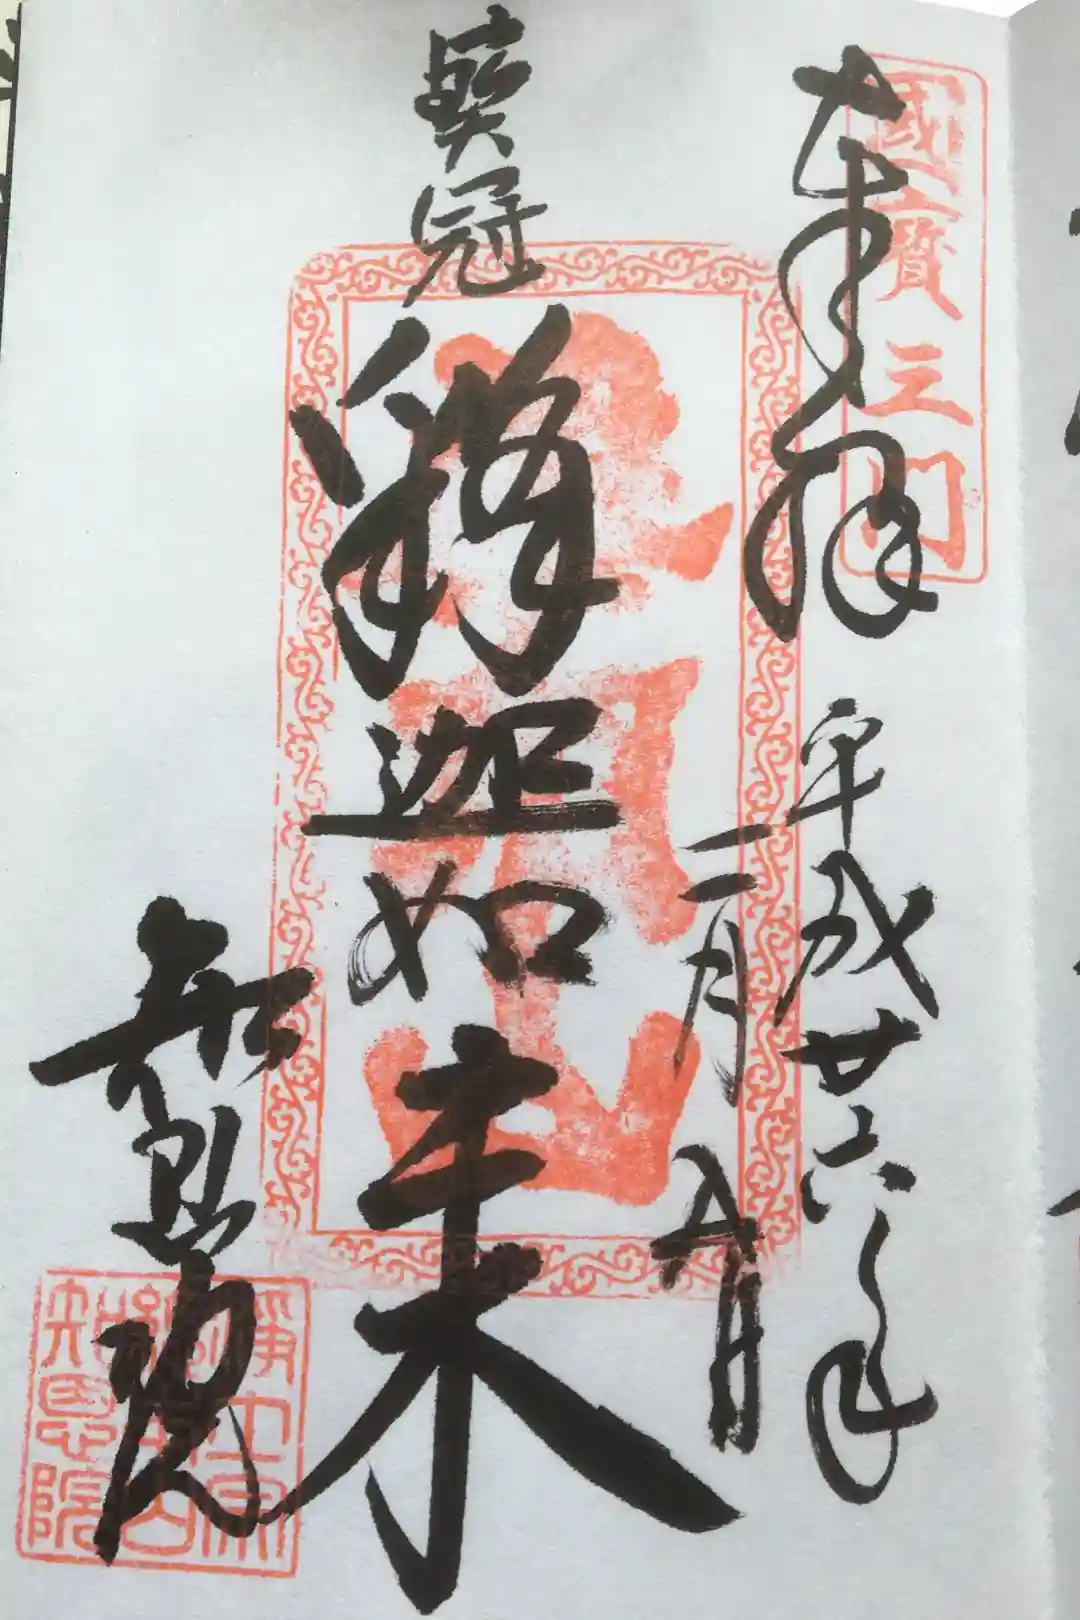 國寶三門
奉拝
平成廿六年
二月九日
寶冠
釋迦如来
知恩院
淨土宗
總本山
知恩院